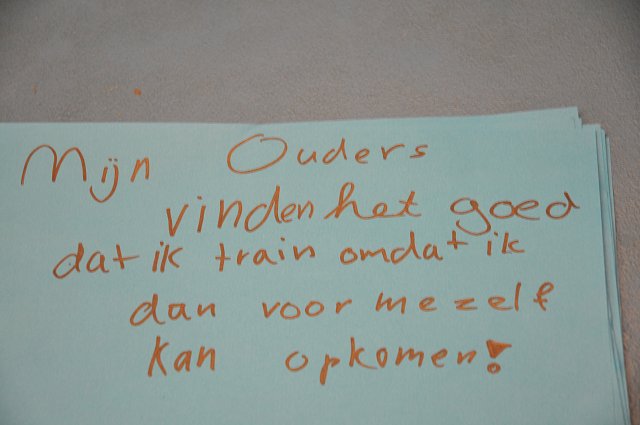 Mijn Ouders
vinden het goed
dat ik train omdat ik
dan voor mezelf
kan opkomen!